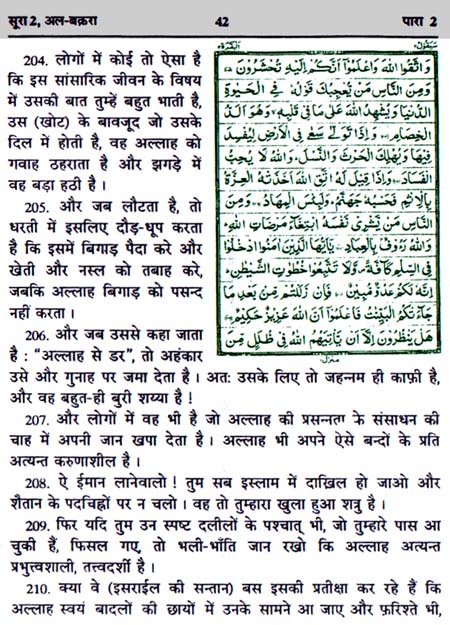 सूरा 2, अल-बक़रा 42 पारा 2
204. लोगों में कोई तो ऐसा है
कि इस सांसारिक जीवन के विषय
में उसकी बात तुम्हें बहुत भाती है,
उस (खोट) के बावजूद जो उसके
दिल में होती है, वह अल्लाह को
गवाह ठहराता है और झगड़े में
वह बड़ा हठी है ।
205. और जब लौटता है, तो
धरती में इसलिए दौड़-धूप करता
है कि इसमें बिगाड़ पैदा करे और
खेती और नस्ल को तबाह करे,
जबकि अल्लाह बिगाड़ को पसन्द
नहीं करता ।
206. और जब उससे कहा जाता
है : “अल्लाह से डर”, तो अहंकार
سيقول٢ البقرة٢
وَاتَّقُوا اللهَ وَاعْلَمُوْٓا اَنَّكُمْ اِلَيْهِ تُحْشَرُوْنَ
وَمِنَ النَّاسِ مَنْ يُّعْجِبُكَ قَوْلُهٗ فِي الْحَيٰوةِ
الدُّنْيَا وَيُشْهِدُ اللهَ عَلٰى مَا فِيْ قَلْبِهٖ وَهُوَ اَلَدُّ
الْخِصَامِ وَاِذَا تَوَلّٰى سَعٰى فِي الْاَرْضِ لِيُفْسِدَ
فِيْهَا وَيُهْلِكَ الْحَرْثَ وَالنَّسْلَ وَاللهُ لَا يُحِبُّ
الْفَسَادَ وَاِذَا قِيْلَ لَهُ اتَّقِ اللهَ اَخَذَتْهُ الْعِزَّةُ
بِالْاِثْمِ فَحَسْبُهٗ جَهَنَّمُ وَلَبِئْسَ الْمِهَادُ وَمِنَ
النَّاسِ مَنْ يَّشْرِيْ نَفْسَهُ ابْتِغَآءَ مَرْضَاتِ اللهِ
وَاللهُ رَءُوْفٌۢ بِالْعِبَادِ يٰٓاَيُّهَا الَّذِيْنَ اٰمَنُوا ادْخُلُوْا
فِي السِّلْمِ كَآفَّةً وَّلَا تَتَّبِعُوْا خُطُوٰتِ الشَّيْطٰنِ
اِنَّهٗ لَكُمْ عَدُوٌّ مُّبِيْنٌ فَاِنْ زَلَلْتُمْ مِّنْۢ بَعْدِ مَا
جَآءَتْكُمُ الْبَيِّنٰتُ فَاعْلَمُوْٓا اَنَّ اللهَ عَزِيْزٌ حَكِيْمٌ
هَلْ يَنْظُرُوْنَ اِلَّآ اَنْ يَّاْتِيَهُمُ اللهُ فِيْ ظُلَلٍ مِّنَ
منزل١
उसे और गुनाह पर जमा देता है । अतः उसके लिए तो जहन्नम ही काफ़ी है,
और वह बहुत-ही बुरी शय्या है !
207. और लोगों में वह भी है जो अल्लाह की प्रसन्नता के संसाधन की
चाह में अपनी जान खपा देता है । अल्लाह भी अपने ऐसे बन्दों के प्रति
अत्यन्त करुणाशील है ।
208. ऐ ईमान लानेवालो ! तुम सब इस्लाम में दाख़िल हो जाओ और
शैतान के पदचिह्नों पर न चलो । वह तो तुम्हारा खुला हुआ शत्रु है ।
209. फिर यदि तुम उन स्पष्ट दलीलों के पश्चात् भी, जो तुम्हारे पास आ
चुकी हैं, फिसल गए, तो भली-भाँति जान रखो कि अल्लाह अत्यन्त
प्रभुत्वशाली, तत्त्वदर्शी है ।
210. क्या वे (इसराईल की सन्तान) बस इसकी प्रतीक्षा कर रहे हैं कि
अल्लाह स्वयं बादलों की छायों में उनके सामने आ जाए और फ़रिश्ते भी,